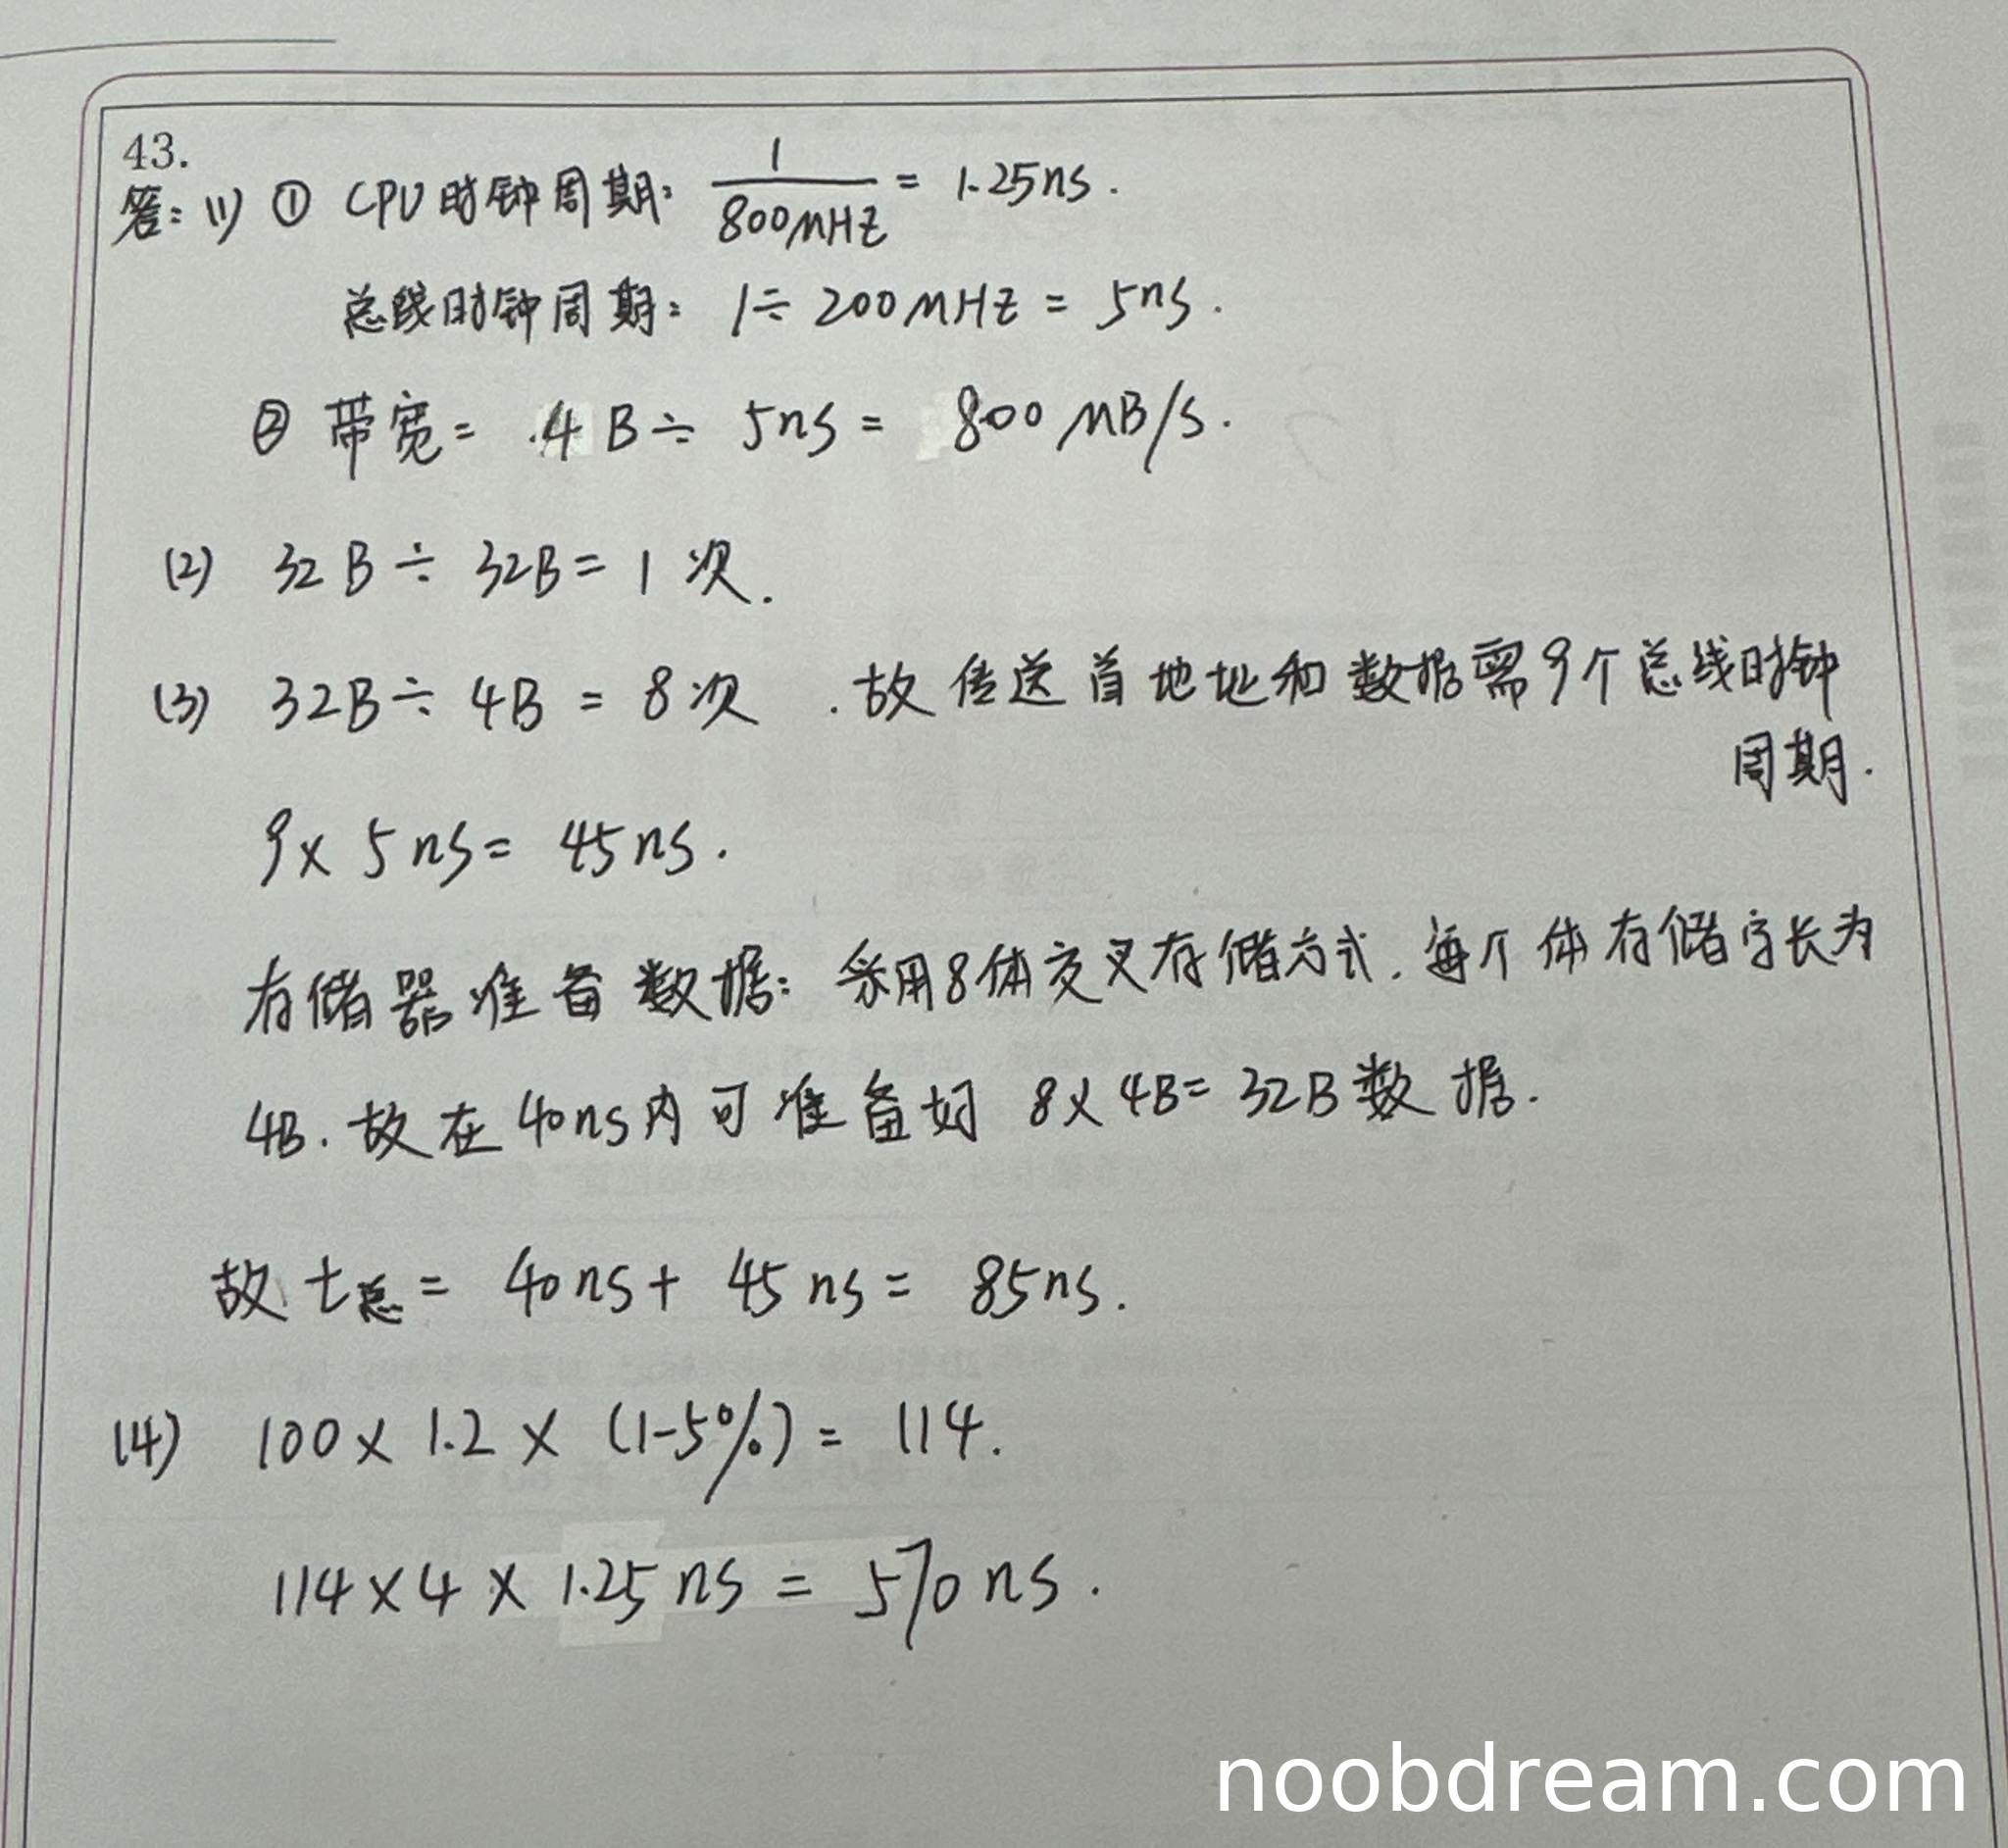 43.
答: (1) ① CPU时钟周期: 1/800MHZ = 1.25ns.
总线时钟周期: 1÷200MHZ = 5ns.
② 带宽= 4B÷ 5ns= 800MB/s.
(2) 32B÷32B=1次.
(3) 32B÷4B=8次. 故传送首地址和数据需9个总线时钟
周期.
9×5ns=45ns.
存储器准备数据: 采用8体交叉存储方式. 每个体存储字长为
4B. 故在40ns内可准备好 8×4B=32B数据.
故t总= 40ns+45ns=85ns.
(4) 100×1.2×(1-5%)=114.
114×4×1.25ns=570ns.
noobdream.com